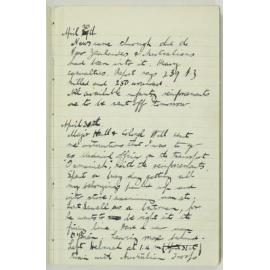 April 29th
News came through that the
New Zealanders & Australians
had been into it. Heavy
casualties. Report says 239 
killed and 350 wounded.
All available infantry reinforcements
are to be sent off tomorrow
April 30th
Major Hall & Lloyd Will sent
me instructions that I was to go
as medical officer on the transport
with the reinforcements.
Spent a busy day getting all
my belongings packed up and
into store: assuming
as a batman, for
he wants to be right into the
firing line. Have a new
Leaving most behind.
Left Helmet at 1 a.m.
train with Australian Troops